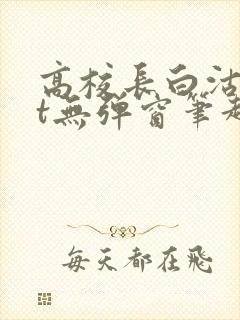 高校長白沽
t無彈窗筆趣
每天都在飛